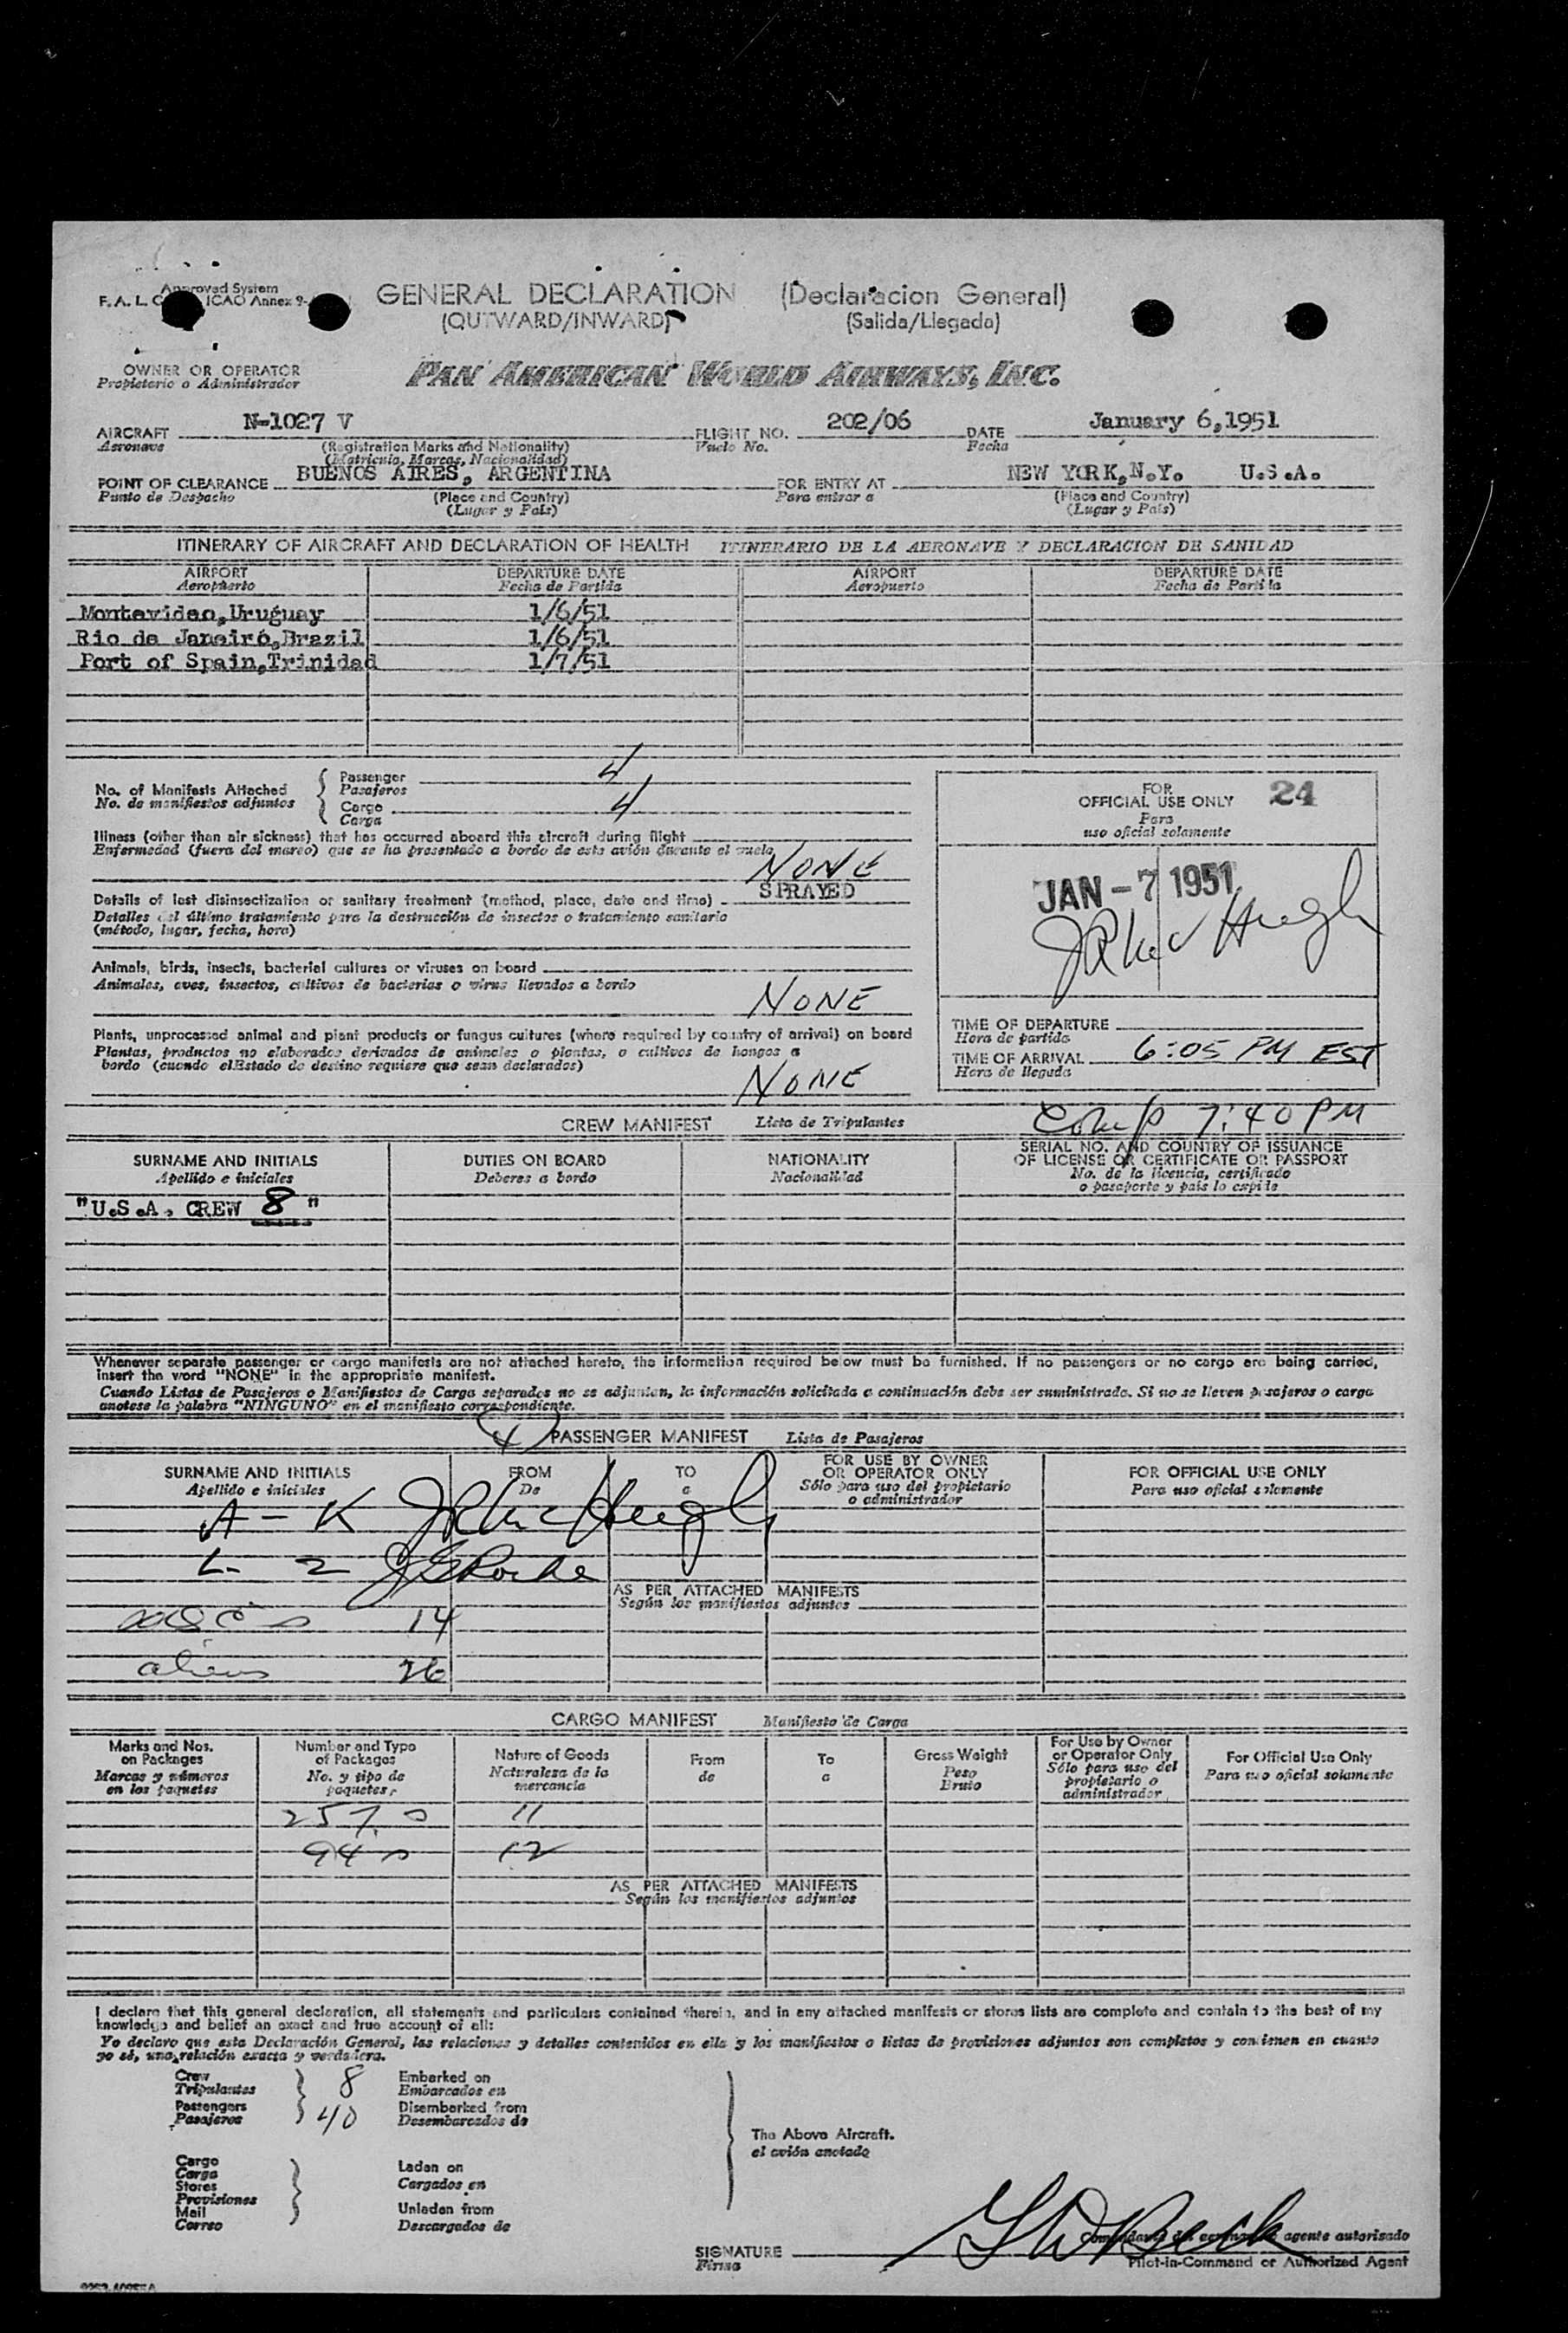 Approved System
F. A. L. C ICAO Annex 9-
GENERAL DECLARATION (Declaracion General)
(OUTWARD/INWARD) (Salida/Llegada)
OWNER OR OPERATOR
Propietario o Administrador
PAN AMERICAN WORLD AIRWAYS, INC.
AIRCRAFT N-1027 V FLIGHT NO. 202/06 DATE January 6,1951
Aeronave (Registration Marks and Nationality) Vuelo No. Fecha
(Matricula, Marcas, Nacionalidad)
POINT OF CLEARANCE BUENOS AIRES, ARGENTINA FOR ENTRY AT NEW YORK,N.Y. U.S.A.
Punto de Despacho (Place and Country) Para entrar a (Place and Country)
(Lugar y País) (Lugar y País)
ITINERARY OF AIRCRAFT AND DECLARATION OF HEALTH ITINERARIO DE LA AERONAVE Y DECLARACION DE SANIDAD
AIRPORT DEPARTURE DATE AIRPORT DEPARTURE DATE
Aeropuerto Fecha de Partida Aeropuerto Fecha de Partida
Montevideo,Uruguay 1/6/51
Rio de Janeiro,Brazil 1/6/51
Port of Spain,Trinidad 1/7/51
No. of Manifests Attached
No. de manifiestos adjuntos
Passenger 4
Pasajeros
Cargo 4
Carga
Illness (other than air sickness) that has occurred aboard this aircraft during flight
Enfermedad (fuera del mareo) que se ha presentado a bordo de este avión durante el vuelo
NONE
Details of last disinsectization or sanitary treatment (method, place, date and time) SPRAYED
Detalles del último tratamiento para la destrucción de insectos o tratamiento sanitario
(método, lugar, fecha, hora)
Animals, birds, insects, bacterial cultures or viruses on board
Animales, aves, insectos, cultivos de bacterias o virus llevados a bordo
NONE
Plants, unprocessed animal and plant products or fungus cultures (where required by country of arrival) on board
Plantas, productos no elaborados derivados de animales o plantas, o cultivos de hongos a
bordo (cuando el Estado de destino requiere que sean declarados)
NONE
FOR
OFFICIAL USE ONLY 24
Para
uso oficial solamente
JAN -7 1951
TIME OF DEPARTURE
Hora de partida
TIME OF ARRIVAL 6:05 PM EST
Hora de llegada
Comp 7:40 PM
CREW MANIFEST Lista de Tripulantes
SURNAME AND INITIALS DUTIES ON BOARD NATIONALITY SERIAL NO. AND COUNTRY OF ISSUANCE
OF LICENSE OR CERTIFICATE OR PASSPORT
Apellido e iniciales Deberes a bordo Nacionalidad No. de la licencia, certificado
o pasaporte y país lo expide
"U.S.A. CREW 8 "
Whenever separate passenger or cargo manifests are not attached hereto, the information required below must be furnished. If no passengers or no cargo are being carried,
insert the word "NONE" in the appropriate manifest.
Cuando Listas de Pasajeros o Manifiestos de Carga separados no se adjunten, la información solicitada a continuación debe ser suministrada. Si no se lleven pasajeros o carga
anotese la palabra "NINGUNO" en el manifiesto correspondiente.
(4) PASSENGER MANIFEST Lista de Pasajeros
SURNAME AND INITIALS FROM TO FOR USE BY OWNER
OR OPERATOR ONLY FOR OFFICIAL USE ONLY
Apellido e iniciales De a Sólo para uso del propietario
o administrador Para uso oficial solamente
A - K
L - Z
AS PER ATTACHED MANIFESTS
Según los manifiestos adjuntos
14
aliens 26
CARGO MANIFEST Manifiesto de Carga
Marks and Nos.
on Packages
Marcas y números
en los paquetes
Number and Type
of Packages
No. y tipo de
paquetes
Nature of Goods
Naturaleza de la
mercancia
From
de
To
a
Gross Weight
Peso
Bruto
For Use by Owner
or Operator Only
Sólo para uso del
propietario o
administrador
For Official Use Only
Para uso oficial solamente
11
12
AS PER ATTACHED MANIFESTS
Según los manifiestos adjuntos
I declare that this general declaration, all statements and particulars contained therein, and in any attached manifests or stores lists are complete and contain to the best of my
knowledge and belief an exact and true account of all:
Yo declaro que esta Declaración General, las relaciones y detalles contenidos en ella y los manifiestos o listas de provisiones adjuntos son completos y contienen en cuanto
yo sé, una relación exacta y verdadera.
Crew 8 Embarked on
Tripulantes Embarcados en
Passengers 40 Disembarked from
Pasajeros Desembarcados de
The Above Aircraft.
el avión anotado
Cargo Laden on
Carga Cargados en
Stores
Provisiones
Mail Unladen from
Correo Descargados de
agente autorisado
SIGNATURE G W Beck
Firma Pilot-in-Command or Authorized Agent